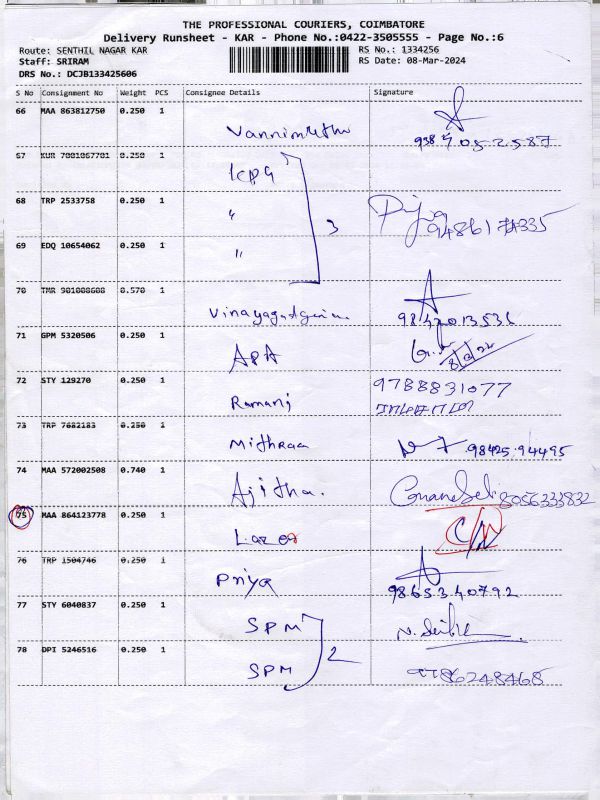 THE PROFESSIONAL COURIERS, COIMBATORE
Delivery Runsheet - KAR - Phone No.:0422-3505555 - Page No.:6
Route: SENTHIL NAGAR KAR RS No.: 1334256
Staff: SRIRAM RS Date: 08-Mar-2024
DRS No.: DCJB133425606
S No Consignment No Weight PCS Consignee Details Signature
66 MAA 863812750 0.250 1
Vannimuthu
67 KUR 7001067701 0.250 1
KPG
68 TRP 2533758 0.250 1
"
3
9486177335
69 EDQ 10654062 0.250 1
"
70 TMR 901008608 0.570 1
9842013536
71 GPM 5320506 0.250 1
APA
8/3/24
72 STY 129270 0.250 1
Ramani 9788831077
73 TRP 7682183 0.250 1
Mithraa 98425.94495
74 MAA 572002508 0.740 1
Ajitha. 8056333832
75 MAA 864123778 0.250 1
C/N
76 TRP 1504746 0.250 1
Priya 9865340792
77 STY 6040837 0.250 1
SPM
2
78 DPI 5246516 0.250 1
SPM 9786248468